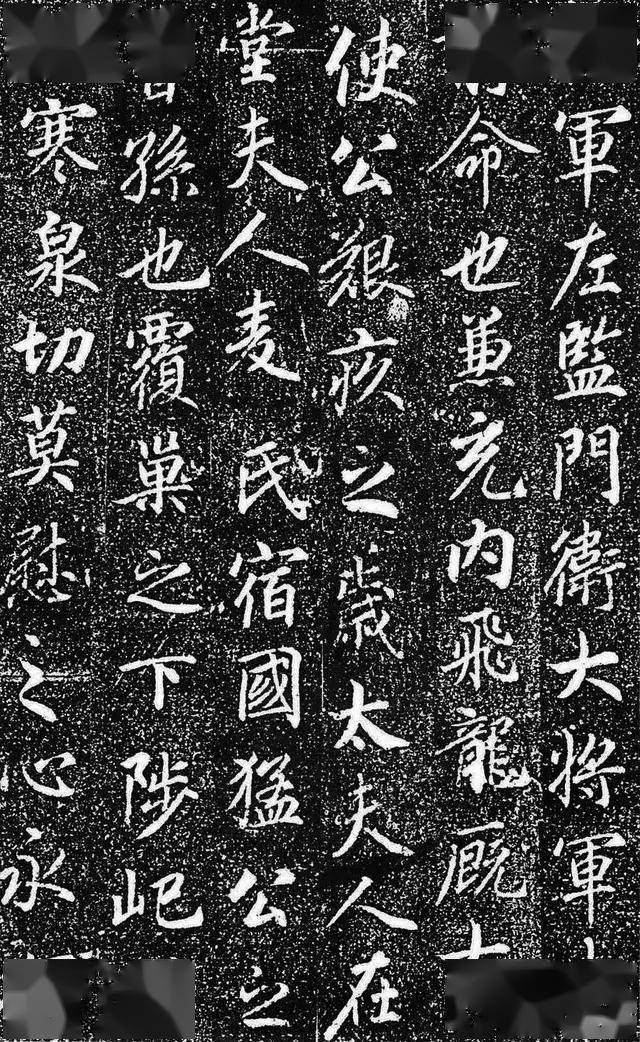 軍左監門衞大将軍
命也兼充内飛龍厩大
使公艱疚之歲太夫人在
堂夫人麦氏宿國猛公之
曾孫也覆巢之下陟屺
寒泉切莫慰之心永